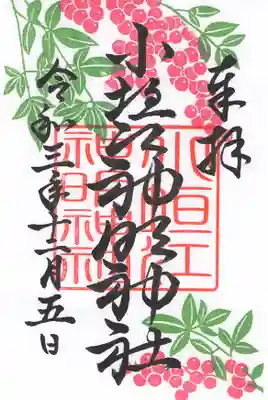 奉拝
小垣江神明神社
令和三年十二月五日
小垣江